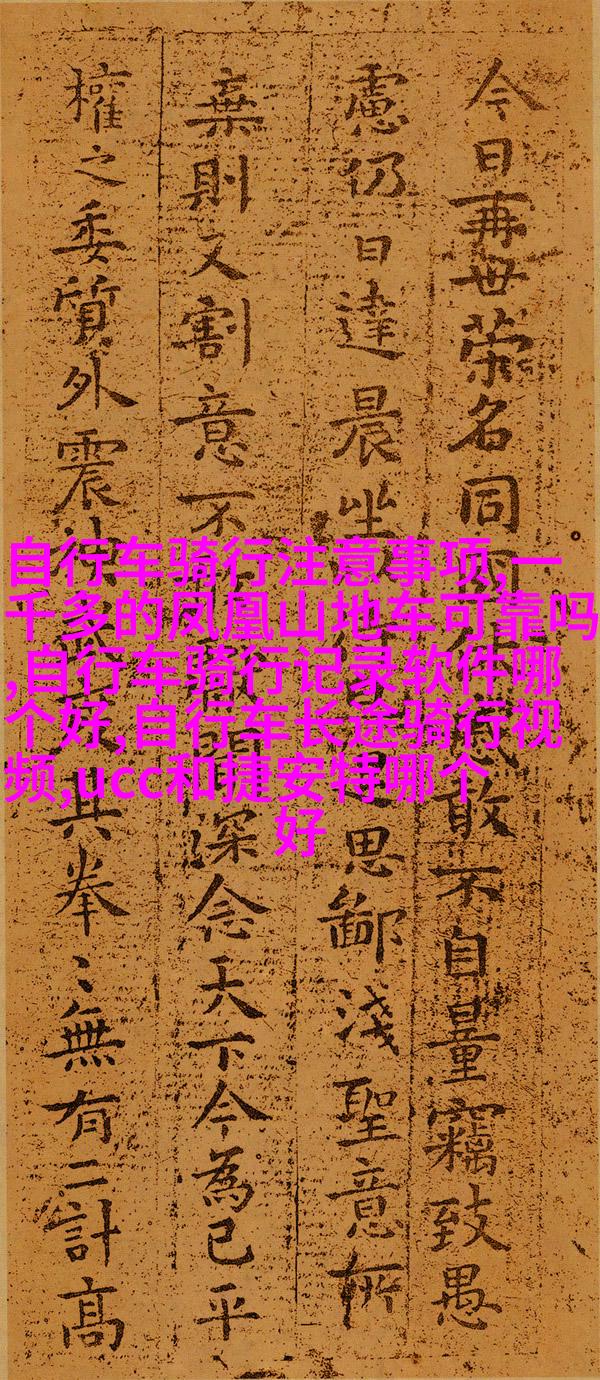 今日再世荣名同休慼敢不自量竊致愚
慮仍日達晨坐待思鄙淺聖意所
棄則又割意不獻聞深念天下今為已平
權之委質外震其拳〻無有二計高
自行车骑行注意事项,一
千多的凤凰山地车可靠吗
,自行车骑行记录软件哪
个好,自行车长途骑行视
频,ucc和捷安特哪个
好